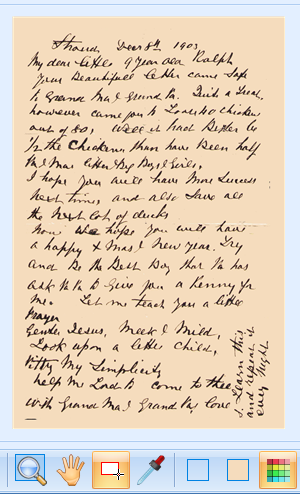 Stroud, Decr 8th 190
My dear little 9 year old Ralph
Your Beautifull letter came safe
to Grand Ma & Grand Pa. Such a treat,
however came you to Loose 40 chicken
out of 80, Well it had Better be
the Chickens than have Been half
little Boys & Girls,
I hope you will have More Success
Next time, and also save all
the Next lot of ducks
Now We hope you will have
a happy X Mas & New year. Try
and Be the Best Boy that Pa has
ask Pa to Give you a Penny for
Me. Let me teach you a little
Prayer
Gentle Jesus, Meek & Mild,
Look upon a little Child,
Pitty My Simplicity
help Me Lord to come to thee
With Grand Ma & Grand Pa, love
Learn this,
and repeat it
ever Night